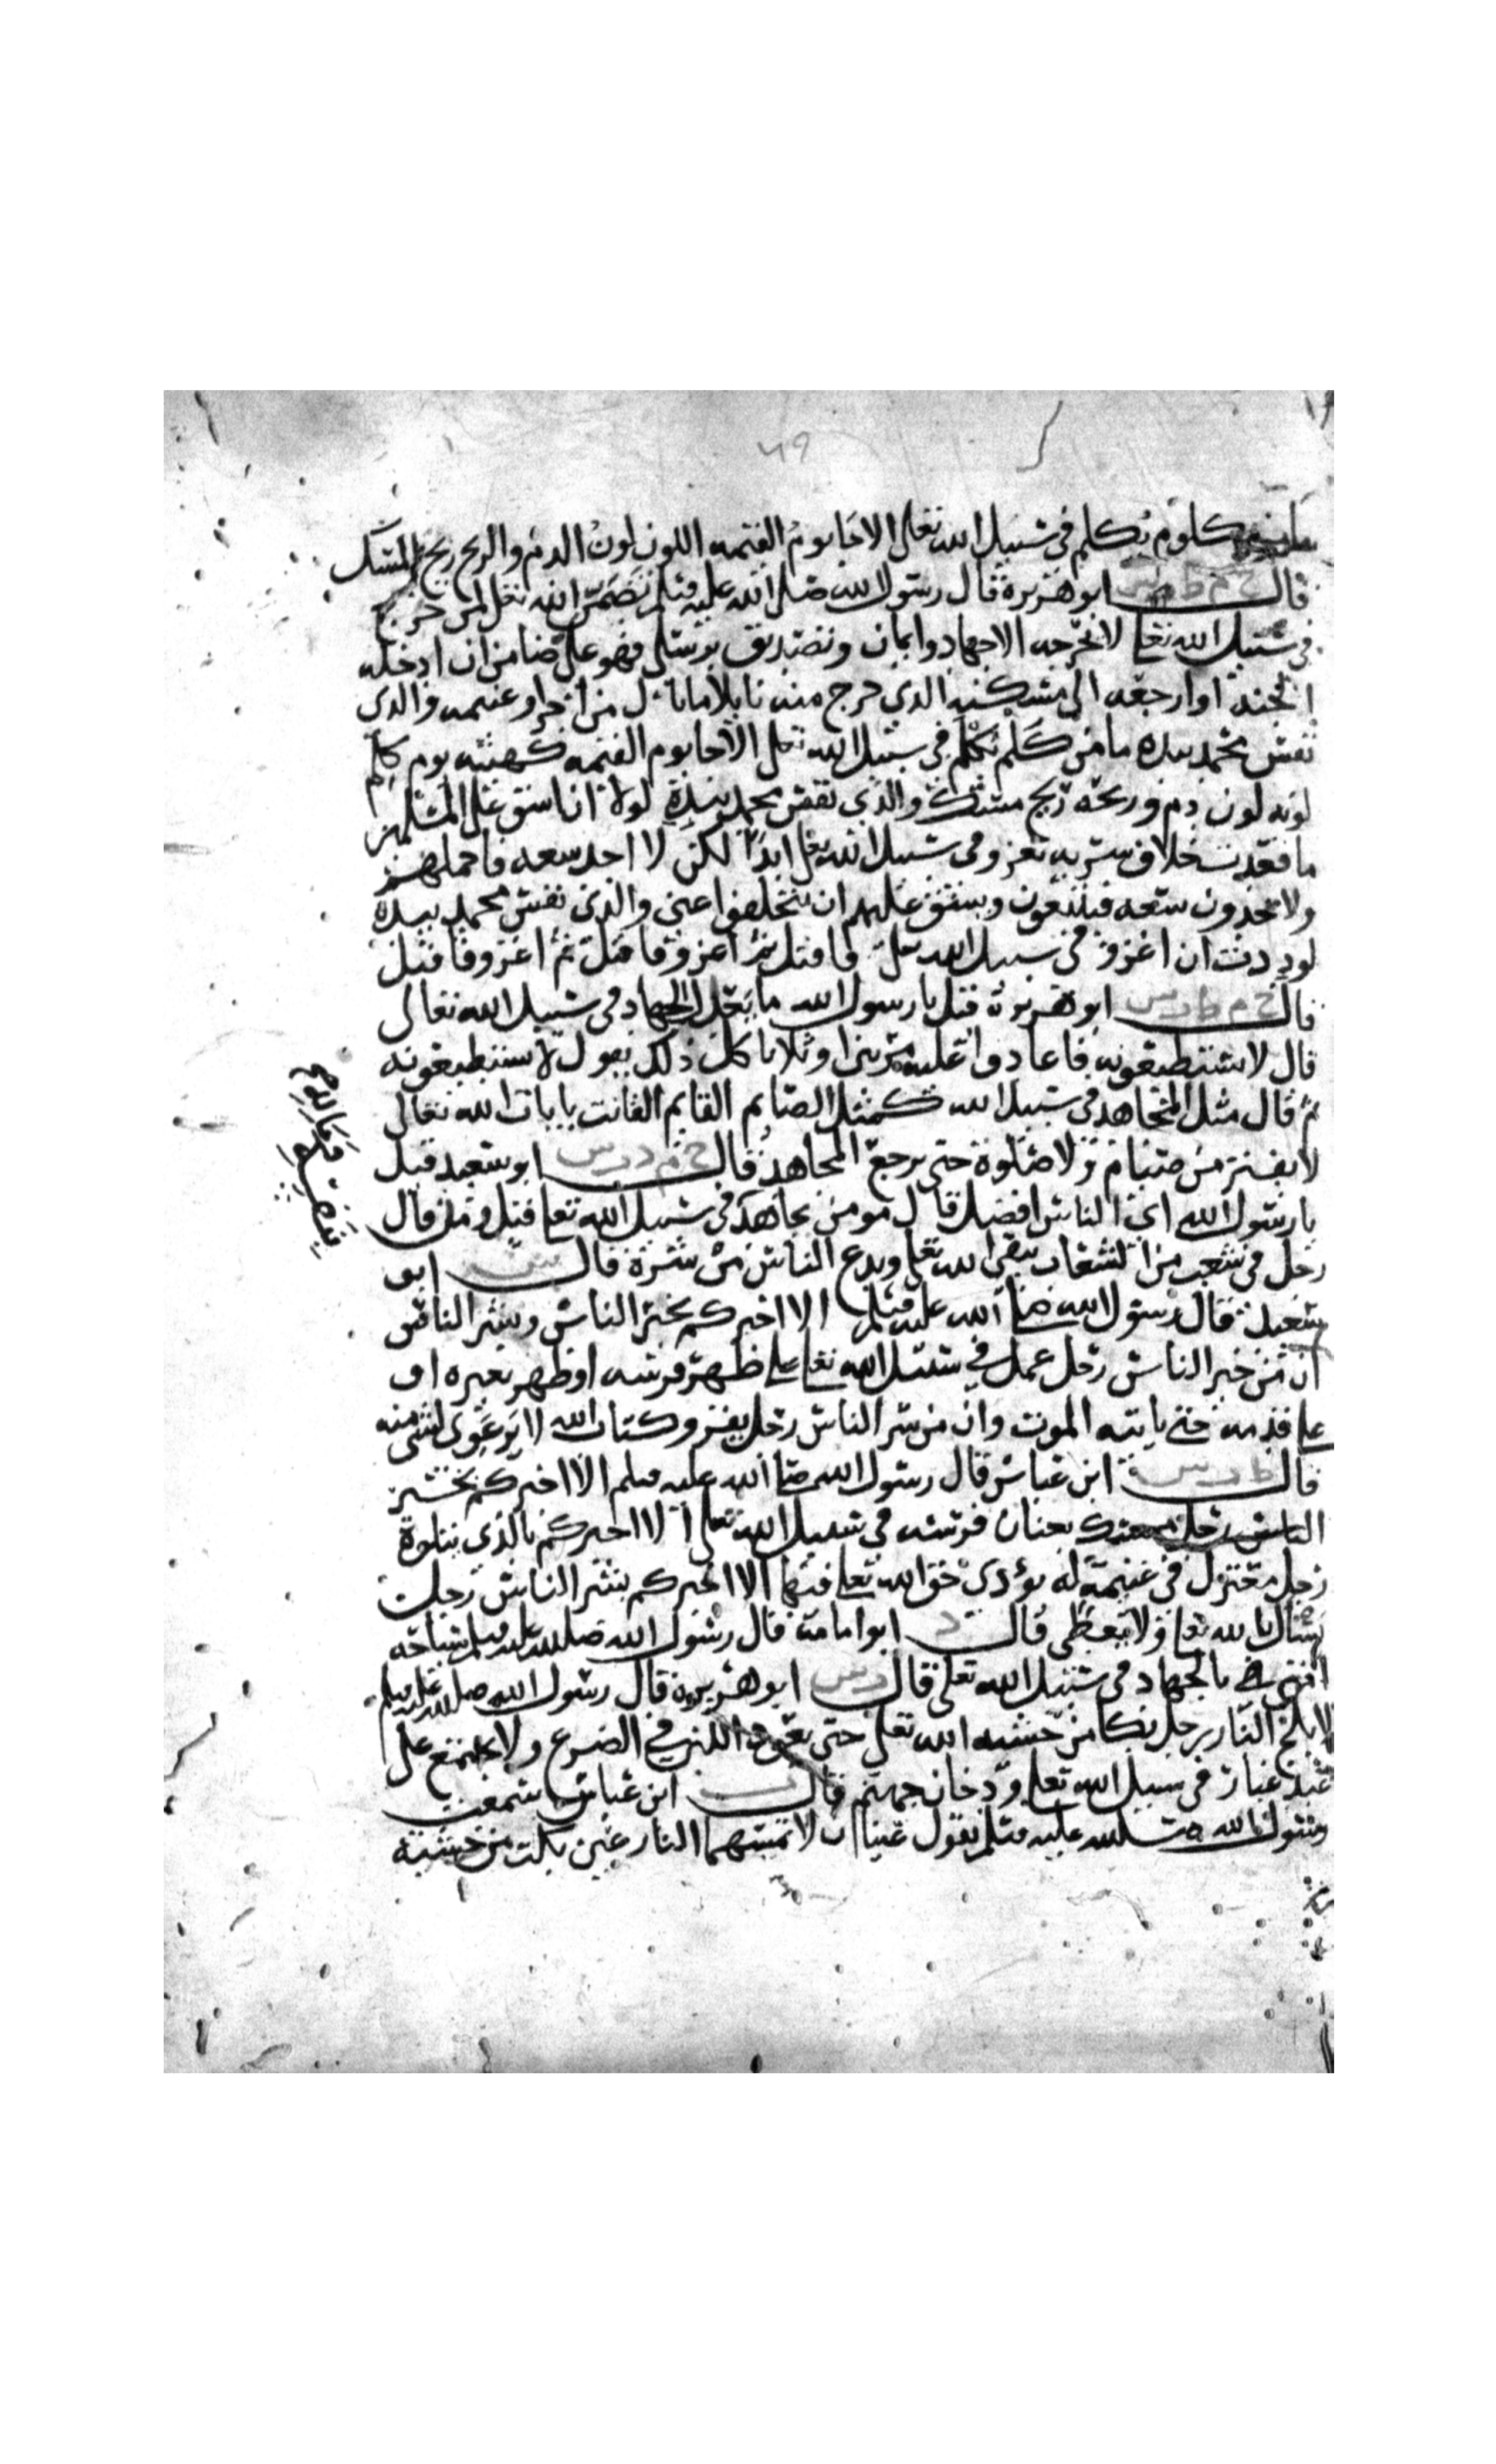 ٤٩
مكلوم يكلم في سبيل الله تعالى الا جا يوم القيمه اللون لون الدم والريح ريح المسك
قال خ م ط س ابو هريرة قال رسول الله صلى الله عليه وسلم تضمن الله تعالى لمن خرج
في سبيل الله تعالى لا يخرجه الا جهاد وايمان وتصديق برسلي فهو علي ضامن ان ادخله
الجنة او ارجعه الى مسكنه الذي خرج منه نايلا ما نال من اجر او غنيمه والذي
نفس محمد بيده ما من كلم يكلم في سبيل الله تعالى الا جا يوم القيمه كهيئته يوم كلم
لونه لون دم وريحه ريح مسك والذي نفس محمد بيده لولا ان اشق على المسلمين
ما قعدت خلاف سريه تغزو في سبيل الله تعالى ابدا لكن لا اجد سعه فاحملهم
ولا يجدون سعه فيتبعون ويشق عليهم ان يتخلفوا عني والذي نفس محمد بيده
لوددت ان اغزو في سبيل الله تعالى فاقتل ثم اغزو فاقتل ثم اغزو فاقتل
قال خ م ط ت س ابو هريرة قيل يا رسول الله ما يعدل الجهاد في سبيل الله تعالى
قال لا تستطيعونه فاعادوا عليه مرتين او ثلاثا كل ذلك يقول لا تستطيعونه
ثم قال مثل المجاهد في سبيل الله كمثل الصايم القايم القانت بايات الله تعالى
لا يفتر من صيام ولا صلوة حتى يرجع المجاهد قال خ م د ت س ابو سعيد قيل
يا رسول الله اي الناس افضل قال مومن يجاهد في سبيل الله تعالى قيل ومن قال
رجل في شعب من الشعاب يتقي الله تعالى ويدع الناس من شره قال س ابو
سعيد قال رسول الله صلى الله عليه وسلم الا اخبركم بخير الناس وشر الناس
ان من خير الناس رجل عمل في سبيل الله تعالى على ظهر فرسه او ظهر بعيره او
على قدمه حتى ياتيه الموت وان من شر الناس رجل يقرو كتاب الله لا يرعوي لشي منه
قال ط ت س ابن عباس قال رسول الله صلى الله عليه وسلم الا اخبركم بخير
الناس رجل ممسك بعنان فرسه في سبيل الله تعالى الا اخبركم بالذي يتلوه
رجل معتزل في غنيمة له يؤدي حق الله تعالى فيها الا اخبركم بشر الناس رجل
يسال بالله تعالى ولا يعطي قال د ابو امامة قال رسول الله صلى الله عليه وسلم سياحه
امتي الجهاد في سبيل الله تعالى قال ت س ابو هريرة قال رسول الله صلى الله عليه وسلم
لا يلج النار رجل بكا من خشيه الله تعالى حتى يعود اللبن في الضرع ولا يجتمع على
عبد غبار في سبيل الله تعالى ودخان جهنم قال ت ابن عباس سمعت
رسول الله صلى الله عليه وسلم يقول عينان لا تمسهما النار عين بكت من خشية